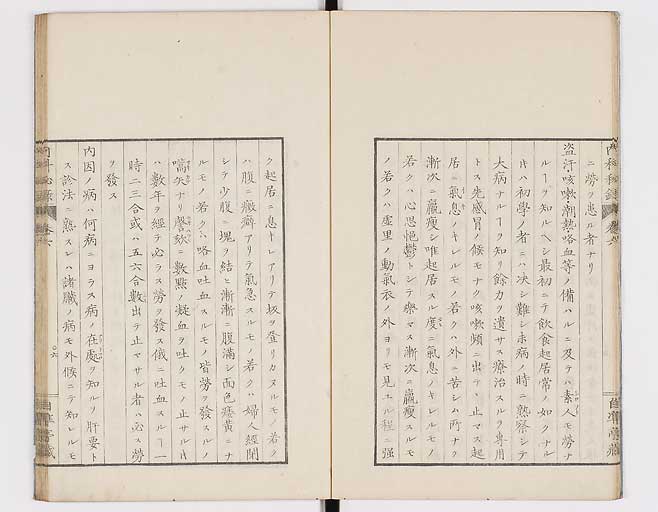 ニ勞ヲ患ル者ナリ
盗汗咳嗽潮熱咯血等ノ備ハルニ及テハ素人モ勞ナ
ルヿヲ知ルヘシ最初ニテ飲食起居常ノ如クナル
片ハ初學ノ者ニハ决シ難シ未病ノ時ニ熟察シテ
大病ナルヿヲ知リ餘力ヲ遺サス療治スルヲ專用
トス先感冒ノ候モナク咳嗽頻ニ出テ丶止マス起
居ニ氣息ノキレルモノ若クハ外ニ苦シム所ナク
漸次ニ羸瘦シ唯起居スル度ニ氣息ノキレルモノ
若クハ心思悒鬱トシテ樂マス漸次ニ羸瘦スルモ
ノ若クハ虚里ノ動氣衣ノ外ヨリモ見エル程ニ强
ク起居ニ息トレアリテ坂ヲ登リカヌルモノ若ク
ハ腹ニ癥癖アリテ氣急スルモノ若クハ婦人經閉
シテ少腹ニ塊ヲ結ヒ漸漸ニ腹滿シ面色痿黄ニナ
ルモノ若クハ咯血吐血スルモノ皆勞ヲ發スルノ
嚆矢ナリ謦欬ニ數點ノ凝血ヲ吐クモノ止サル片
ハ數年ヲ經テ必ラス勞ヲ發ス俄ニ吐血スルヿ一
時ニ二三合或ハ五六合數出テ止マサル者ハ必ス勞
ヲ發ス
内因ノ病ハ何病ニヨラス病ノ在處ヲ知ルヲ肝要ト
ス診法ニ熟スレハ諸臟ノ病モ外候ニテ知レルモ